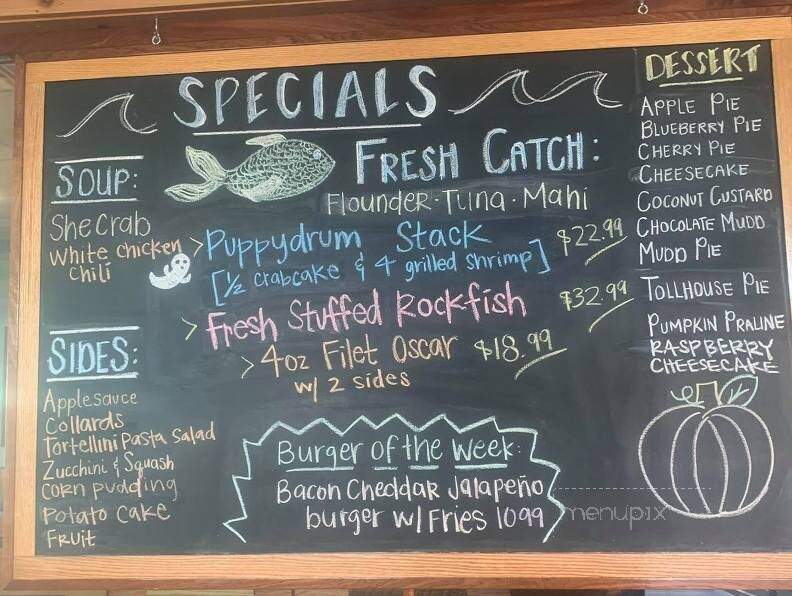 SPECIALS
SOUP:
She Crab
White chicken
chili
FRESH CATCH:
Flounder · Tuna · Mahi
> Puppydrum Stack
[½ crabcake & 4 grilled shrimp] $22.99
> Fresh Stuffed Rockfish $32.99
> 4oz Filet Oscar $18.99
w/ 2 sides
SIDES:
Applesauce
Collards
Tortellini Pasta Salad
Zucchini & Squash
corn pudding
Potato Cake
Fruit
Burger of the Week:
Bacon Cheddar Jalapeño
burger w/ Fries 10.99
DESSERT
APPLE PIE
BLUEBERRY PIE
CHERRY PIE
CHEESECAKE
COCONUT CUSTARD
CHOCOLATE MUDD
MUDD PIE
TOLLHOUSE PIE
PUMPKIN PRALINE
RASPBERRY
CHEESECAKE
menupix